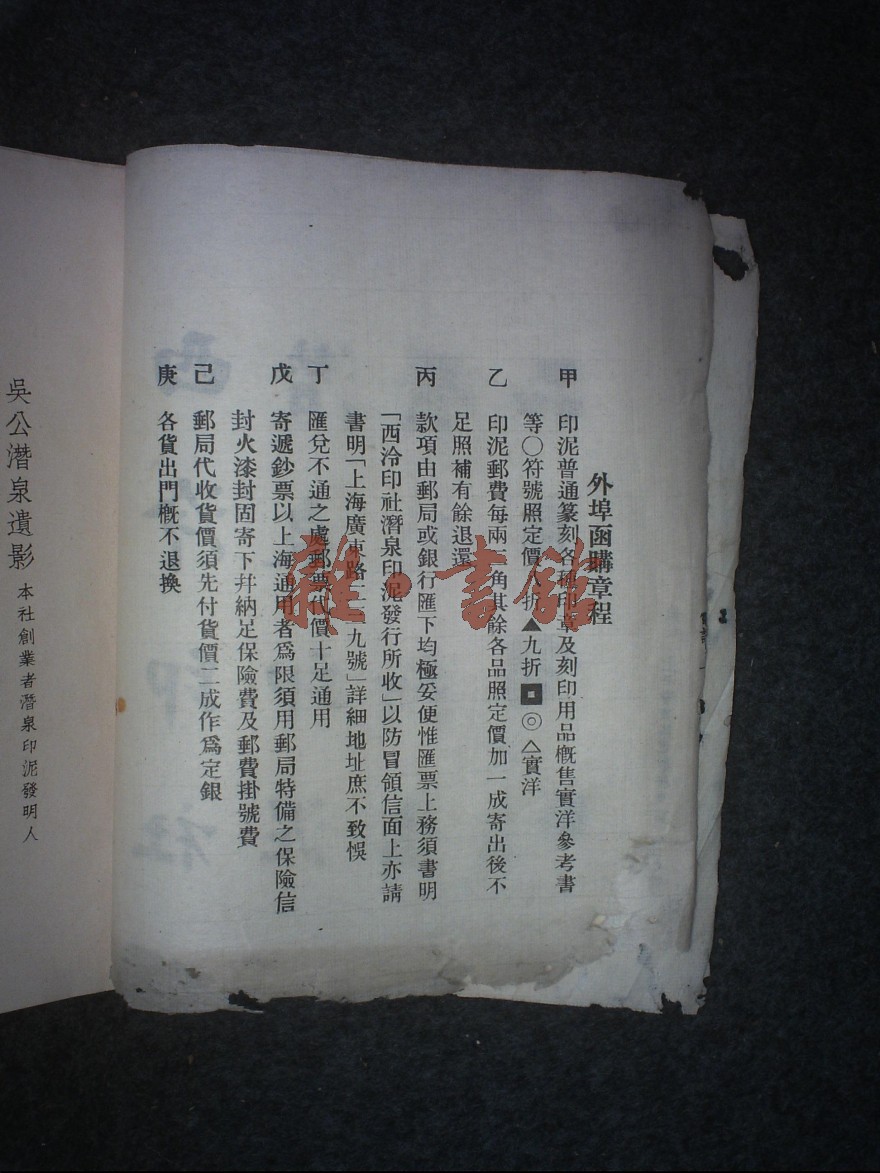 外埠函購章程
甲 印泥普通篆刻各種印章及刻印用品概售實洋參考書
等〇符號照定價八折▲九折◘◎△實洋
乙 印泥郵費每兩一角其餘各品照定價加一成寄出後不
足照補有餘退還
丙 款項由郵局或銀行匯下均極妥便惟匯票上務須書明
「西泠印社潛泉印泥發行所收」以防冒領信面上亦請
書明「上海廣東路 九號」詳細地址庶不致悞
丁 匯兌不通之處郵票代價十足通用
戊 寄遞鈔票以上海通用者爲限須用郵局特備之保險信
封火漆封固寄下幷納足保險費及郵費掛號費
己 郵局代收貨價須先付貨價二成作爲定銀
庚 各貨出門概不退換
吳公潛泉遺影 本社創業者潛泉印泥發明人
雜·書館